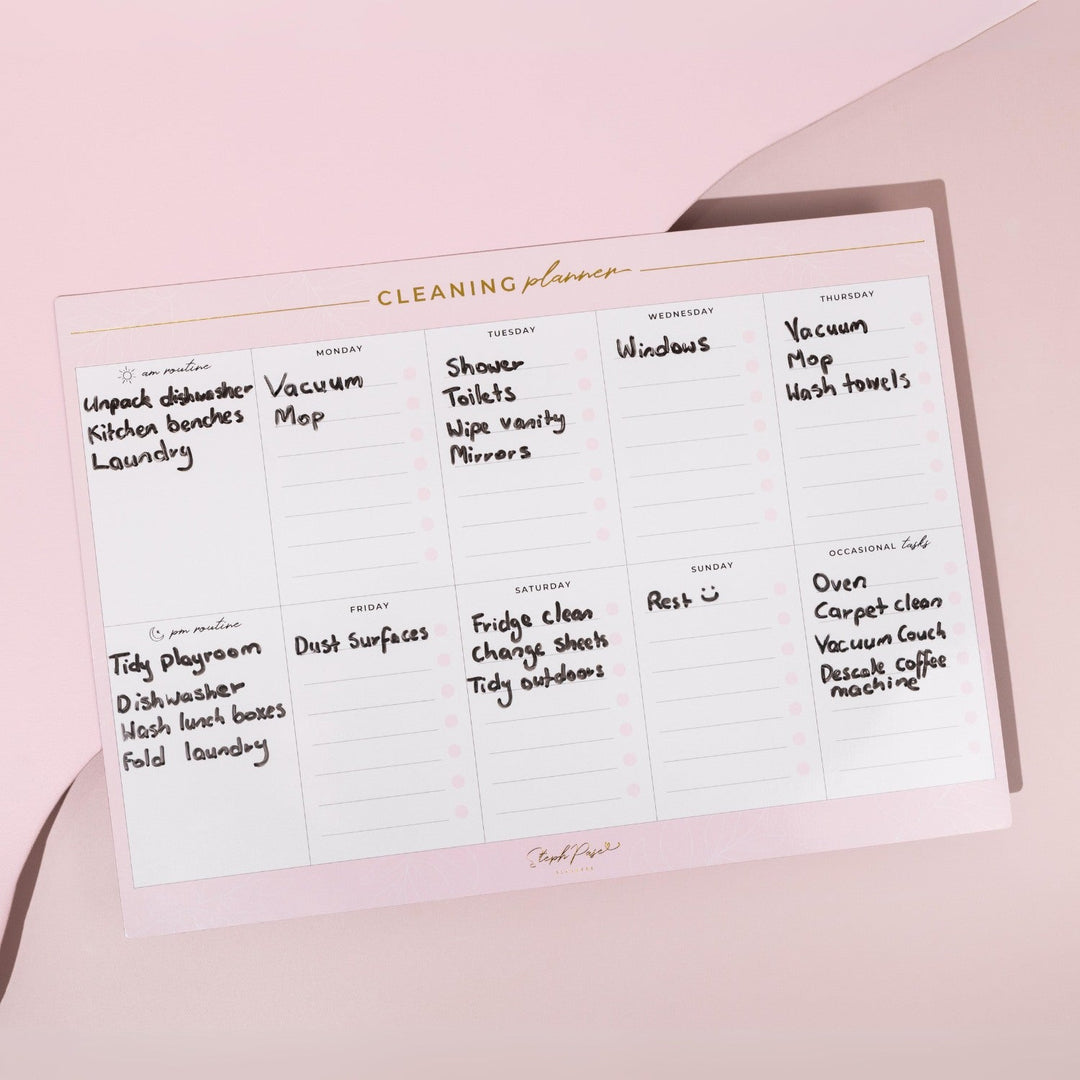 CLEANING planner
am routine
Unpack dishwasher
Kitchen benches
Laundry
MONDAY
Vacuum
Mop
TUESDAY
Shower
Toilets
Wipe vanity
Mirrors
WEDNESDAY
Windows
THURSDAY
Vacuum
Mop
Wash towels
pm routine
Tidy playroom
Dishwasher
Wash lunch boxes
Fold laundry
FRIDAY
Dust Surfaces
SATURDAY
Fridge clean
Change sheets
Tidy outdoors
SUNDAY
Rest
OCCASIONAL tasks
Oven
Carpet clean
Vacuum Couch
Descale coffee
machine
Steph Pase